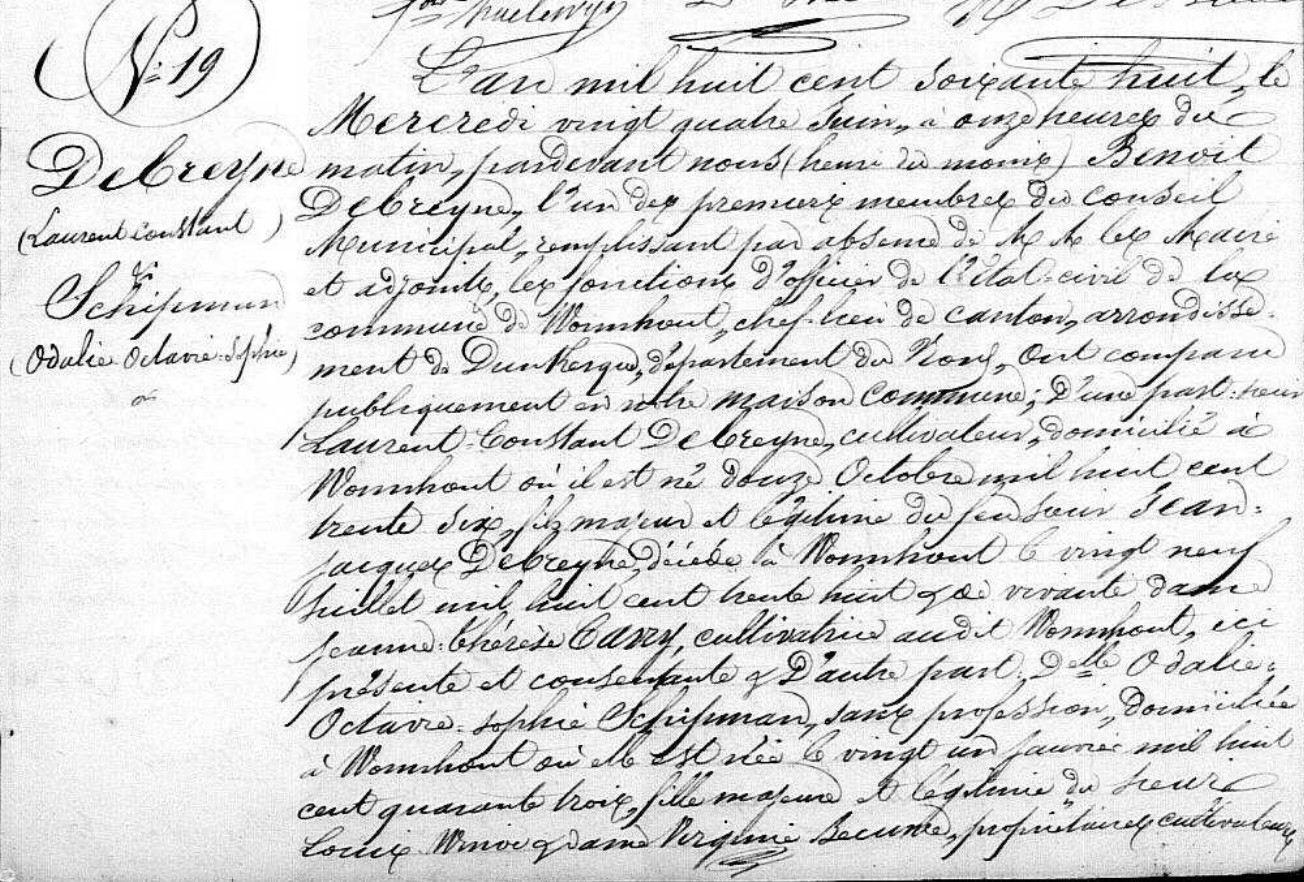 N: 19
Debreyne
(Laurent Constant)
&
Schipman
(Odalie Octavie Sophie)
L'an mil huit cent soixante huit, le
Mercredi vingt quatre Juin, à onze heures du
matin, pardevant nous (henri du monix) Benoit
Debreyne, l'un des premiers membres du conseil
Municipal, remplissant par absence de M M les Maire
et adjoints, les fonctions d'officier de l'état-civil de la
commune de Wormhout, chef-lieu de canton, arrondisse-
ment de Dunkerque, département du Nord, Ont comparu
publiquement en notre maison Commune; D'une part: sieur
Laurent-Constant Debreyne, cultivateur, domicilié à
Wormhout où il est né douze Octobre mil huit cent
trente six, fils majeur et légitime du feu sieur Jean-
Jacques Debreyne, décédé à Wormhout le vingt neuf
Juillet mil huit cent trente huit & de vivante dame
Jeanne-Thérèse Cavry, cultivatrice audit Wormhout, ici
présente et consentante & D'autre part: Delle Odalie-
Octavie-Sophie Schipman, sans profession, domiciliée
à Wormhout où elle est née le vingt un Janvier mil huit
cent quarante trois, fille majeure et légitime du sieur
Louis Winoc & dame Virginie Becuwe, propriétaires cultivateurs